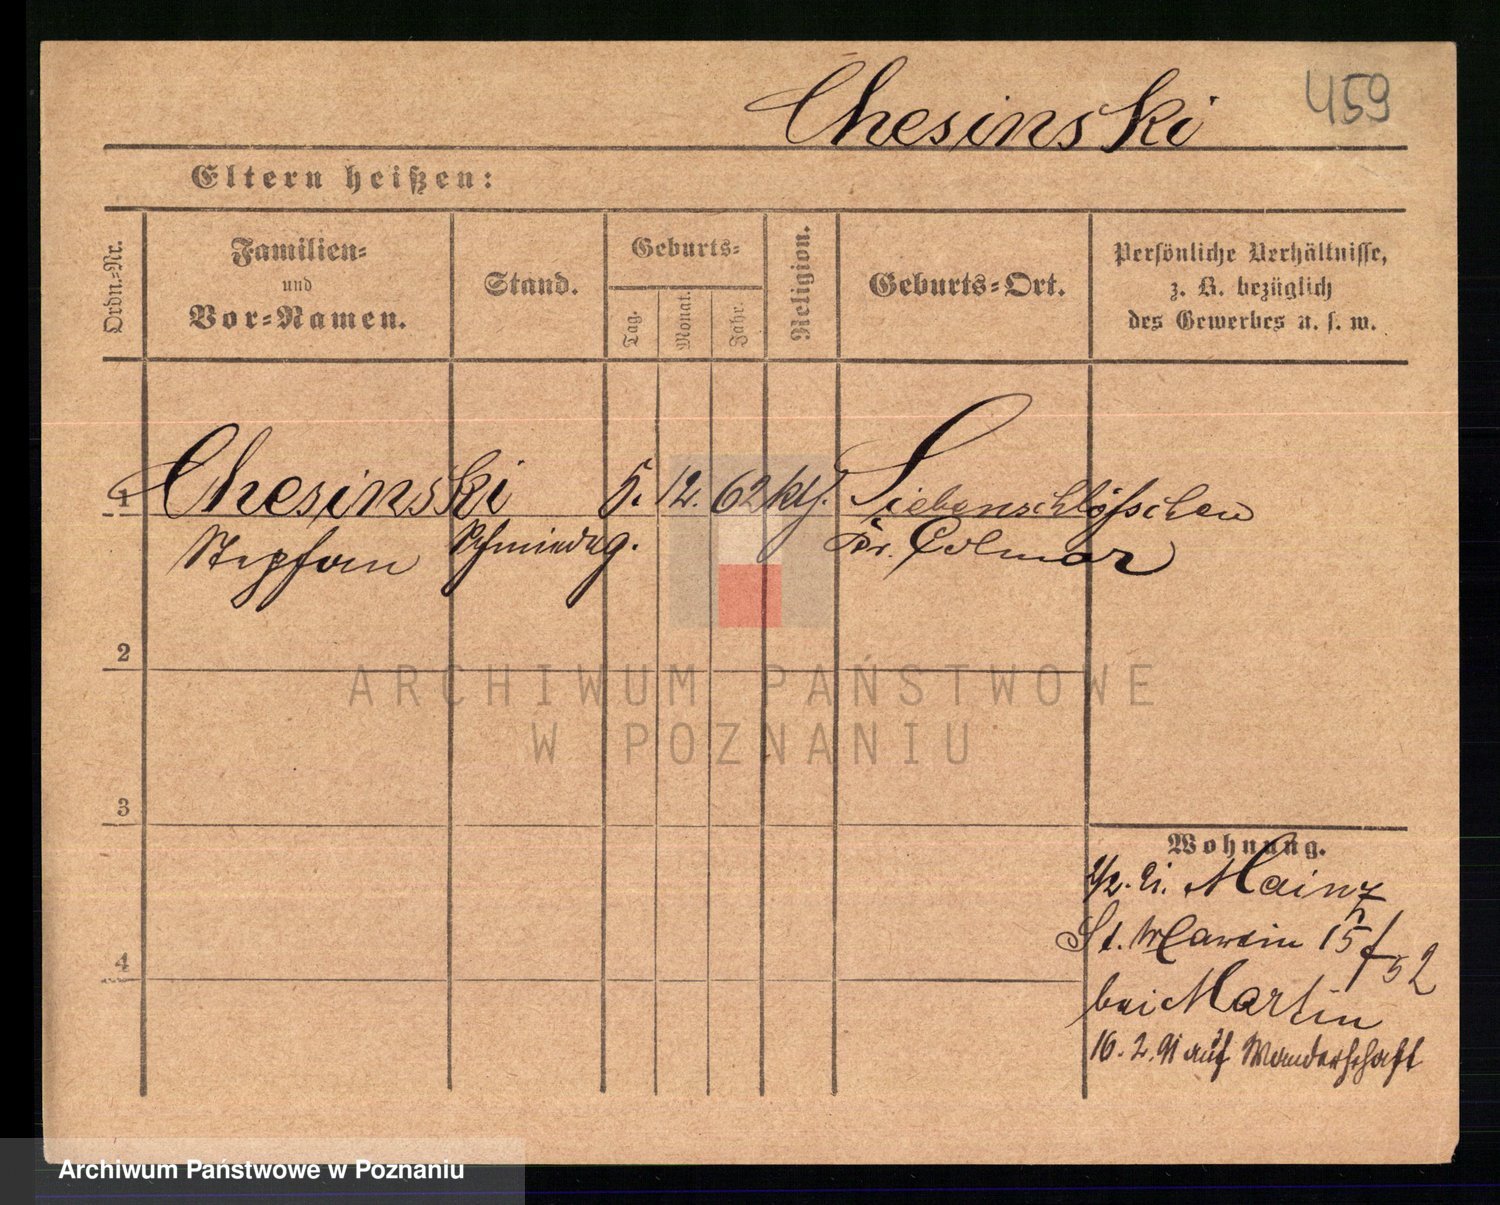 Chesinski
459
Eltern heißen:
Ordn.-Nr.
Familien-
und
Vor-Namen.
Stand.
Geburts-
Tag.
Monat.
Jahr.
Religion.
Geburts-Ort.
Persönliche Verhältnisse,
z. B. bezüglich
des Gewerbes u. s. w.
1 Chesinski 5. 12. 62 ktl. Siebenschlößchen
Stephan Schmiedeg. Kr. Colmar
2
3
4
Wohnung.
2/2. 91. Mainz
St. Martin 15/52
bei Martin
16. 2. 91 auf Wanderschaft
ARCHIWUM PAŃSTWOWE
W POZNANIU
Archiwum Państwowe w Poznaniu